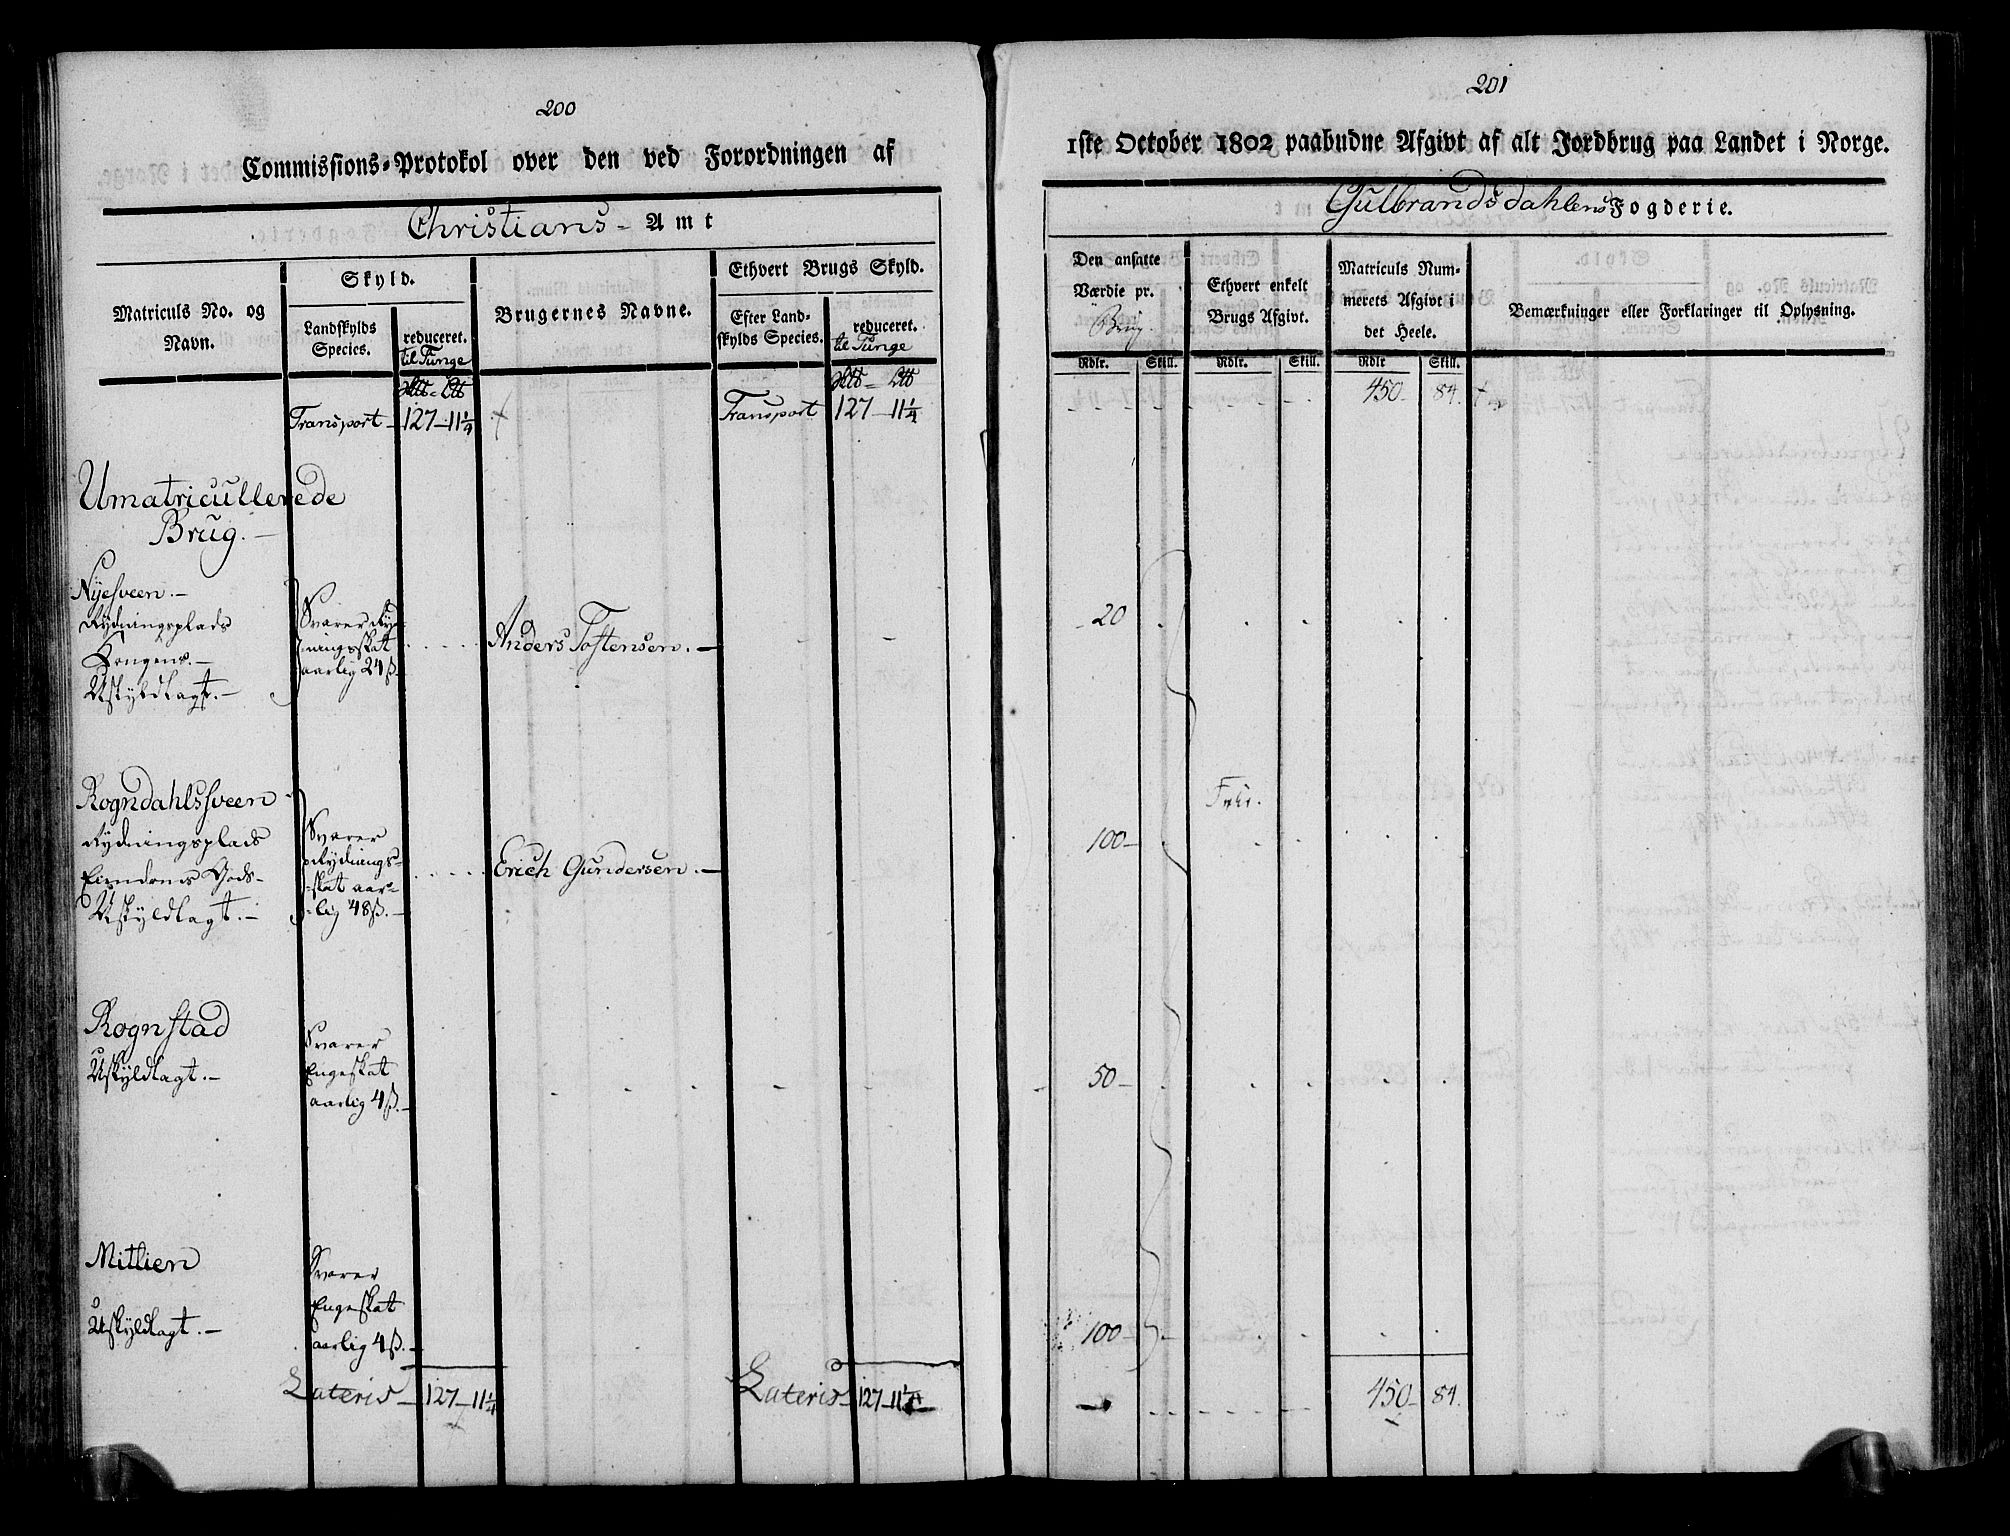 200
Commissions-Protokol over den ved Forordningen af
Christians- Amt
Matriculs No. og Navn.
Skyld.
Landskylds Species.
reduceret.
til Tunge
Brugernes Navne.
Ethvert Brugs Skyld.
Efter Landskylds Species.
reduceret.
til Tunge
Transport - 127 - 11¼
Transport 127 - 11¼
Umatricullerede
Brug. -
Nÿesveen. -
Rydningsplads
Kongens. -
Uskyldlagt. -
Svarer Ryd-
ningsskat
aarlig 24 ß. -
Anders Tostensen. -
Rogndahlssveen
Rydningsplads
Eiendoms Gods -
Uskyldlagt. -
Svarer
Rydnings-
skat aar-
lig 48 ß. -
Erich Gundersen. -
Rognstad
Uskyldlagt. -
Svarer
Engeskat
aarlig 4 ß. -
Mitlien
Uskyldlagt. -
Svarer
Engeskat
aarlig 4 ß. -
Lateris - 127 - 11¼
Lateris - 127 - 11¼
201
1ste October 1802 paabudne Afgivt af alt Jordbrug paa Landet i Norge.
Gulbrandsdahlens Fogderie.
Den ansatte Værdie pr.
Brug.
Ethvert enkelt Brugs Afgivt.
Matriculs Nummerets Afgivt i det Heele.
Bemærkninger eller Forklaringer til Oplysning.
Rdlr. Skill. Rdlr. Skill. Rdlr Skill.
450 - 84.
20
Frie.
100 -
50 -
100 -
450 - 84.